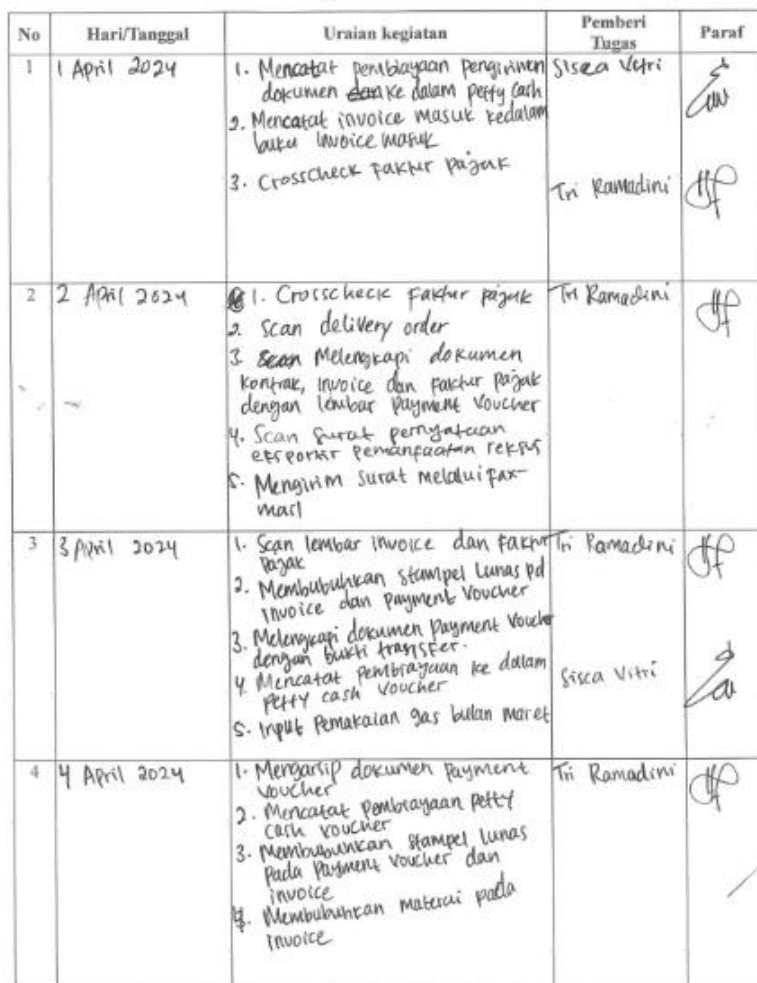 No Hari/Tanggal Uraian kegiatan Pemberi Tugas Paraf
1 1 April 2024 1. Mencatat pembiayaan pengiriman Sisca Vitri
dokumen ke dalam petty cash
2. Mencatat invoice masuk kedalam
buku invoice masuk
3. Crosscheck Faktur pajak
Tri Ramadini
2 2 April 2024 1. Crosscheck Faktur pajak Tri Ramadini
2. Scan delivery order
3. Scan Melengkapi dokumen
kontrak, invoice dan faktur pajak
dengan lembar payment voucher
4. Scan surat pernyataan
eksportir pemanfaatan reksus
5. Mengirim surat melalui fax-
mail
3 3 April 2024 1. Scan lembar invoice dan faktur Tri Ramadini
pajak
2. Membubuhkan stampel Lunas pd
invoice dan payment voucher
3. Melengkapi dokumen payment voucher
dengan bukti transfer.
4. Mencatat pembiayaan ke dalam Sisca Vitri
petty cash voucher
5. Input pemakaian gas bulan maret
4 4 April 2024 1. Mengarsip dokumen payment Tri Ramadini
voucher
2. Mencatat pembiayaan petty
cash voucher
3. Membubuhkan stampel lunas
pada payment voucher dan
invoice
4. Membubuhkan materai pada
invoice